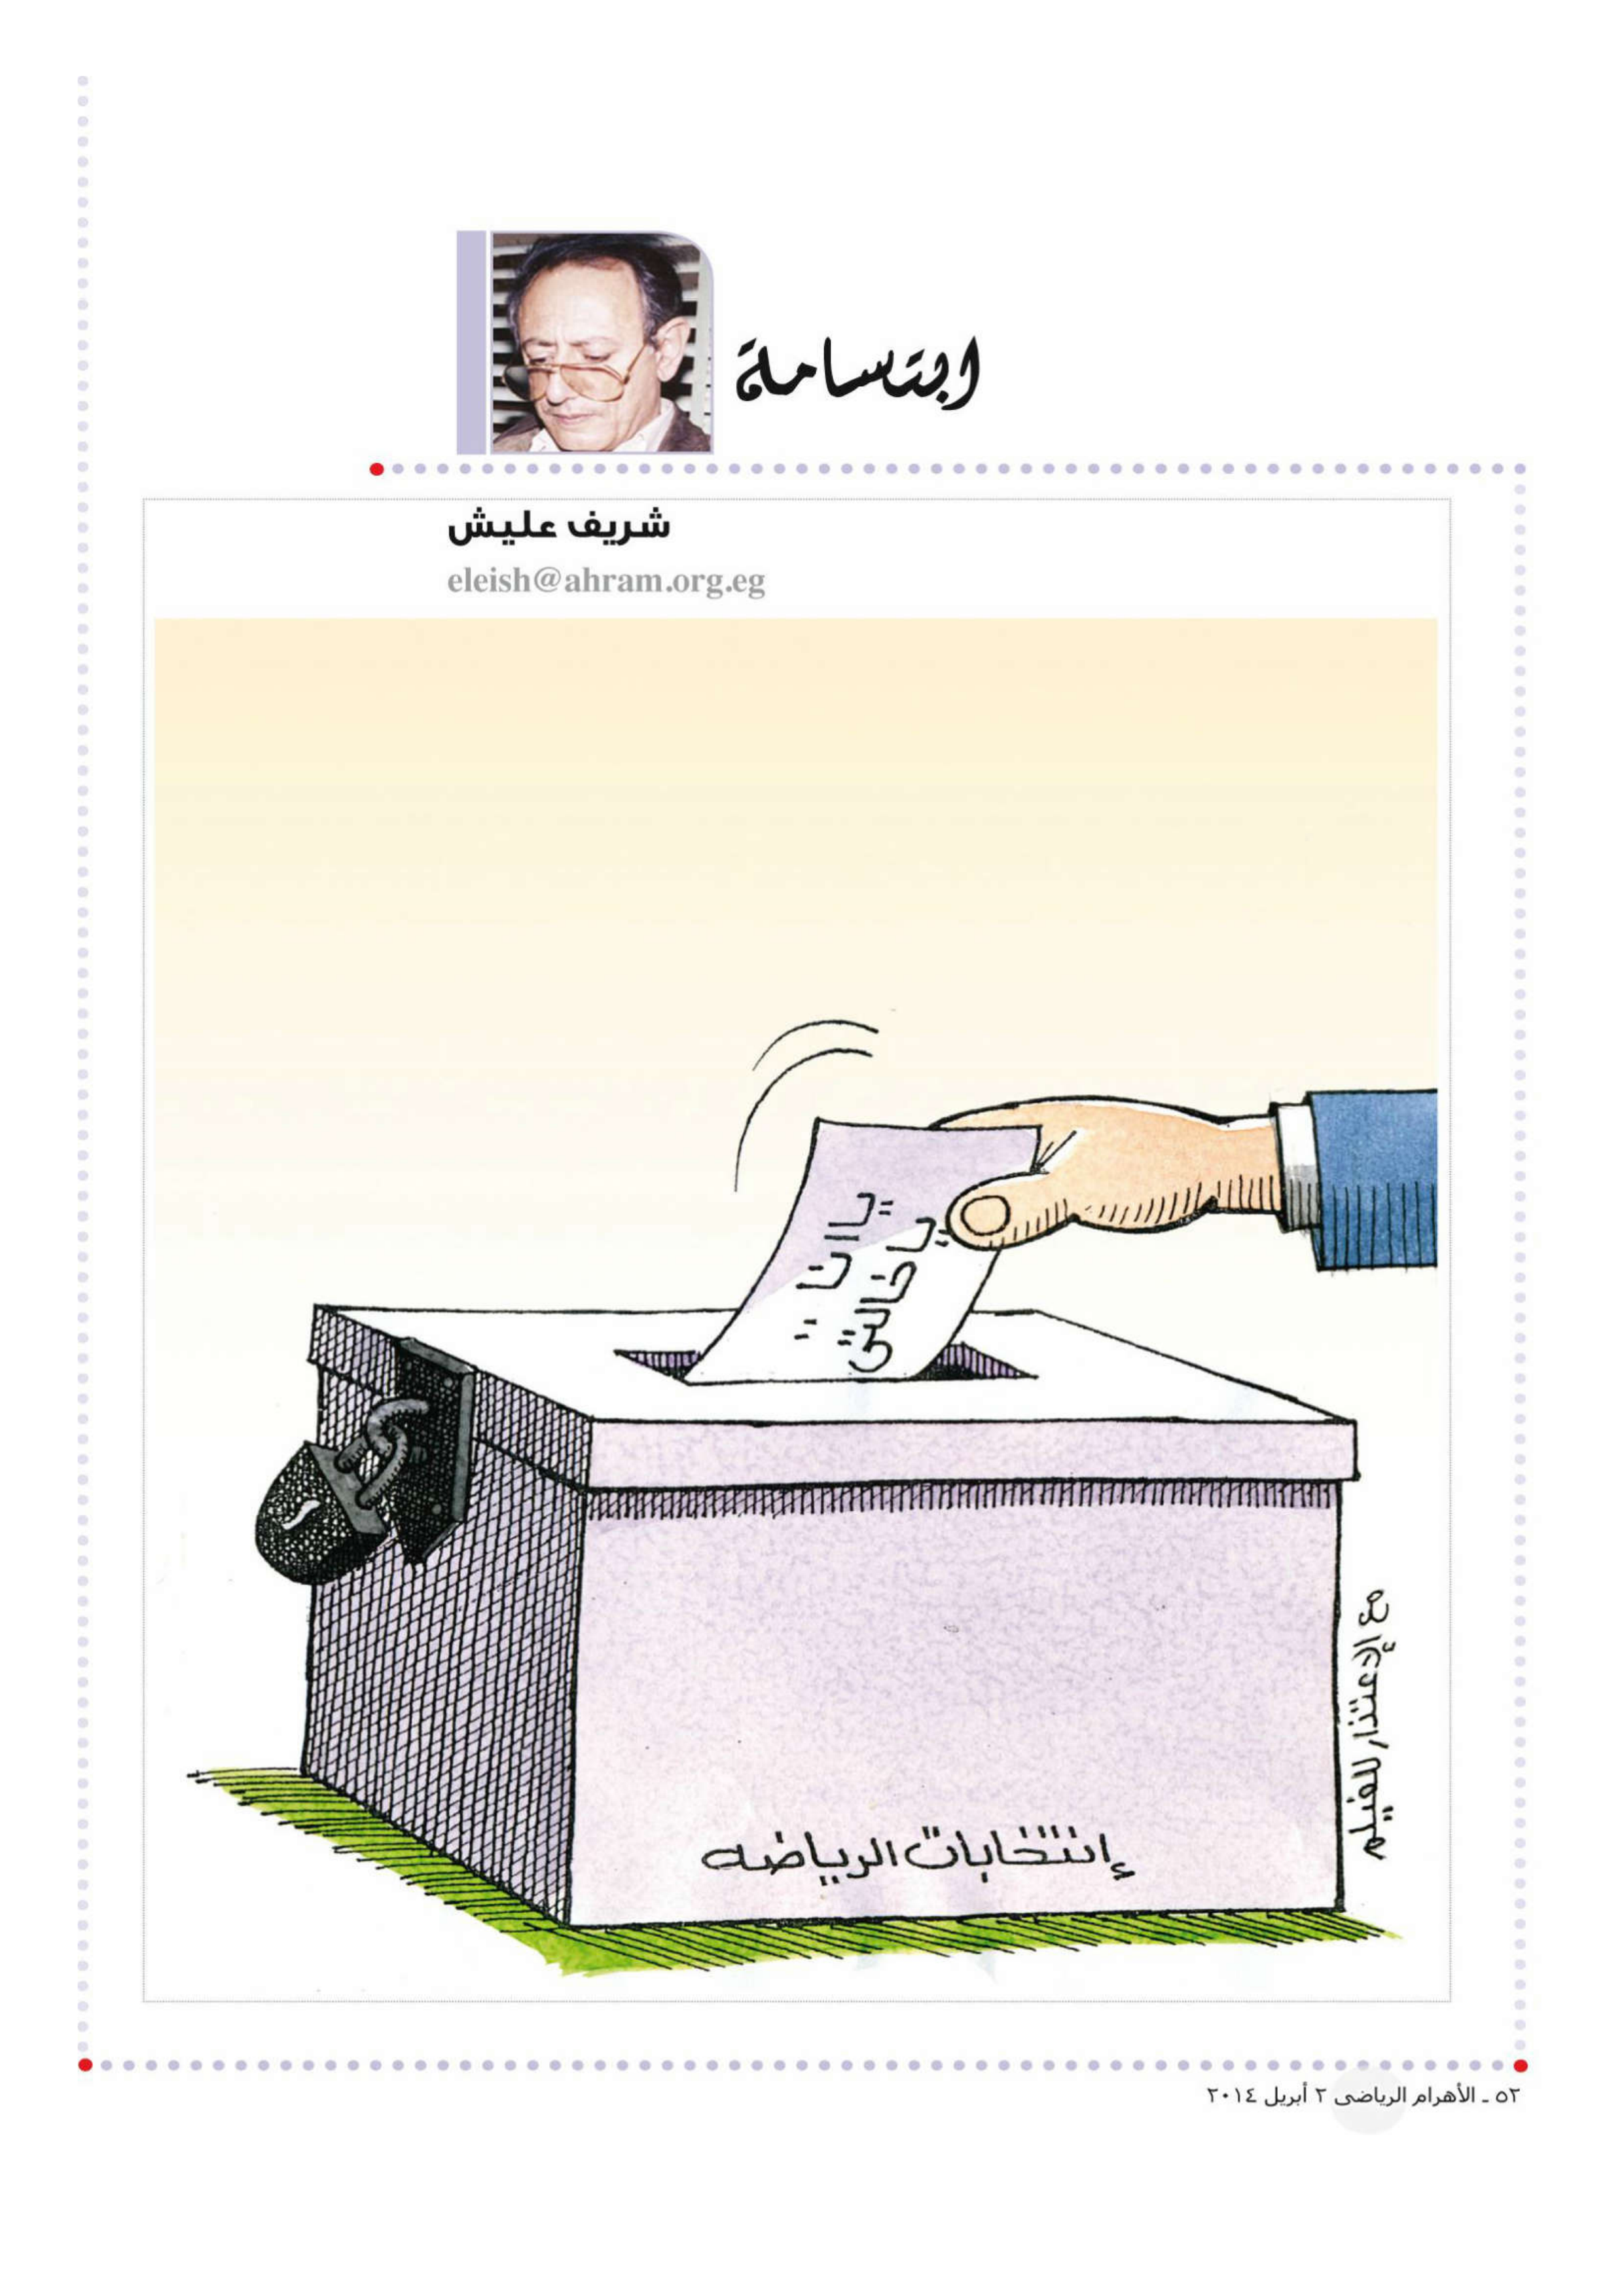 ابتسامة
شريف عليش
eleish@ahram.org.eg
يا انا
يا خالتى
إنتخابات الرياضه
مع إلإعتذار للفيلم
٥٢ ـ الأهرام الرياضى ٢ أبريل ٢٠١٤